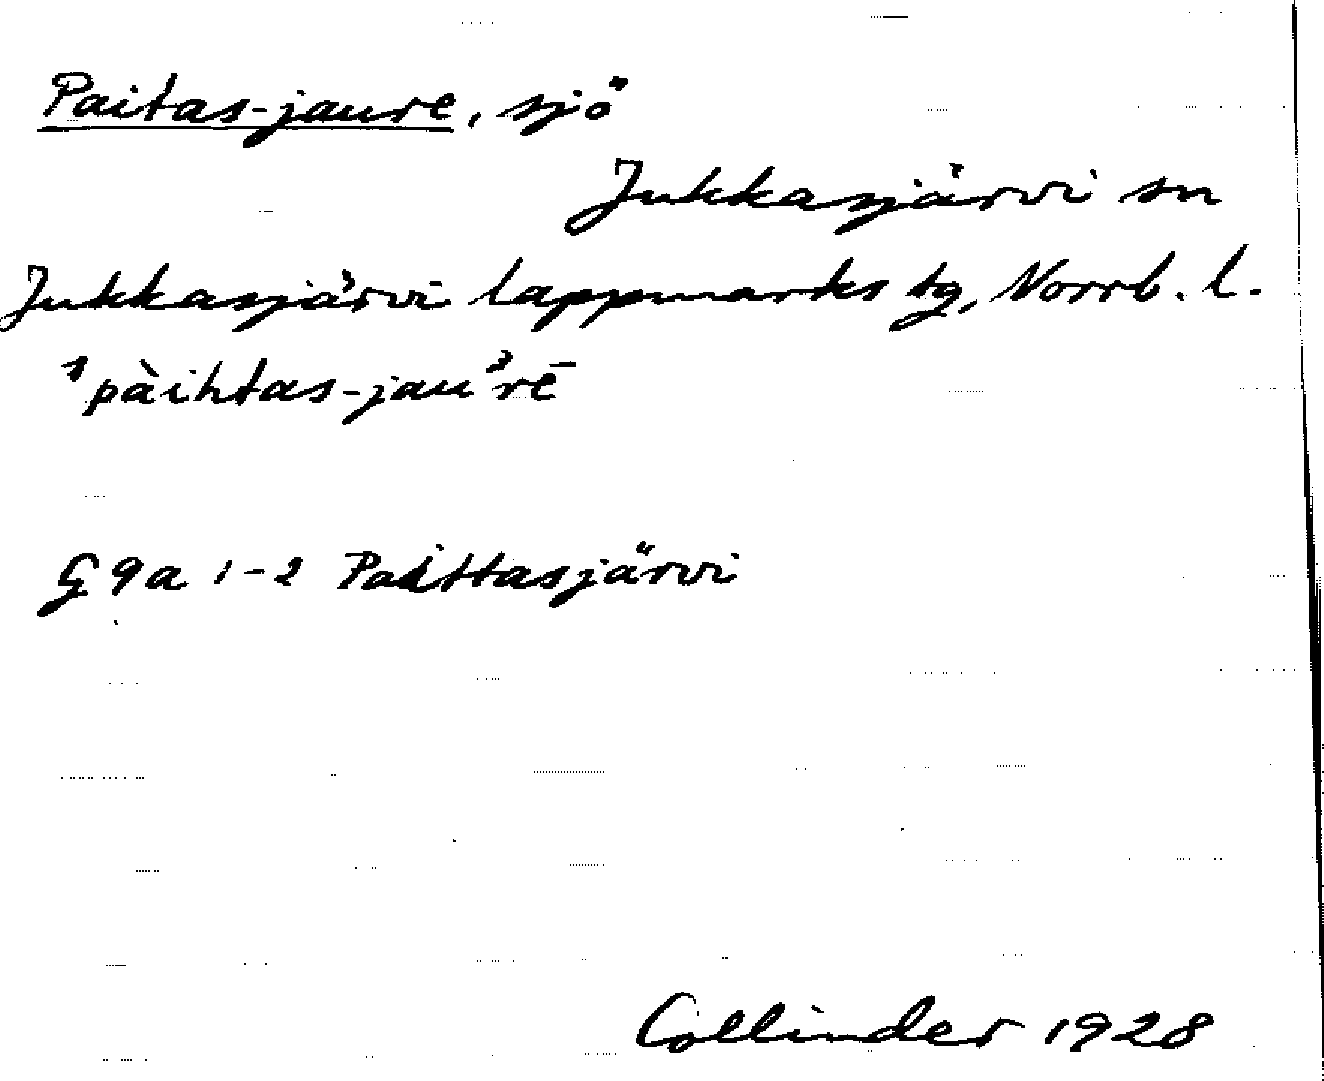 Paitas-jaure, sjö
Jukkasjärvi sn
Jukkasjärvi lappmarks tg, Norrb. l.
¹pàihtas-jau³rē
G 9a 1-2 Paittasjärvi
Collinder 1928